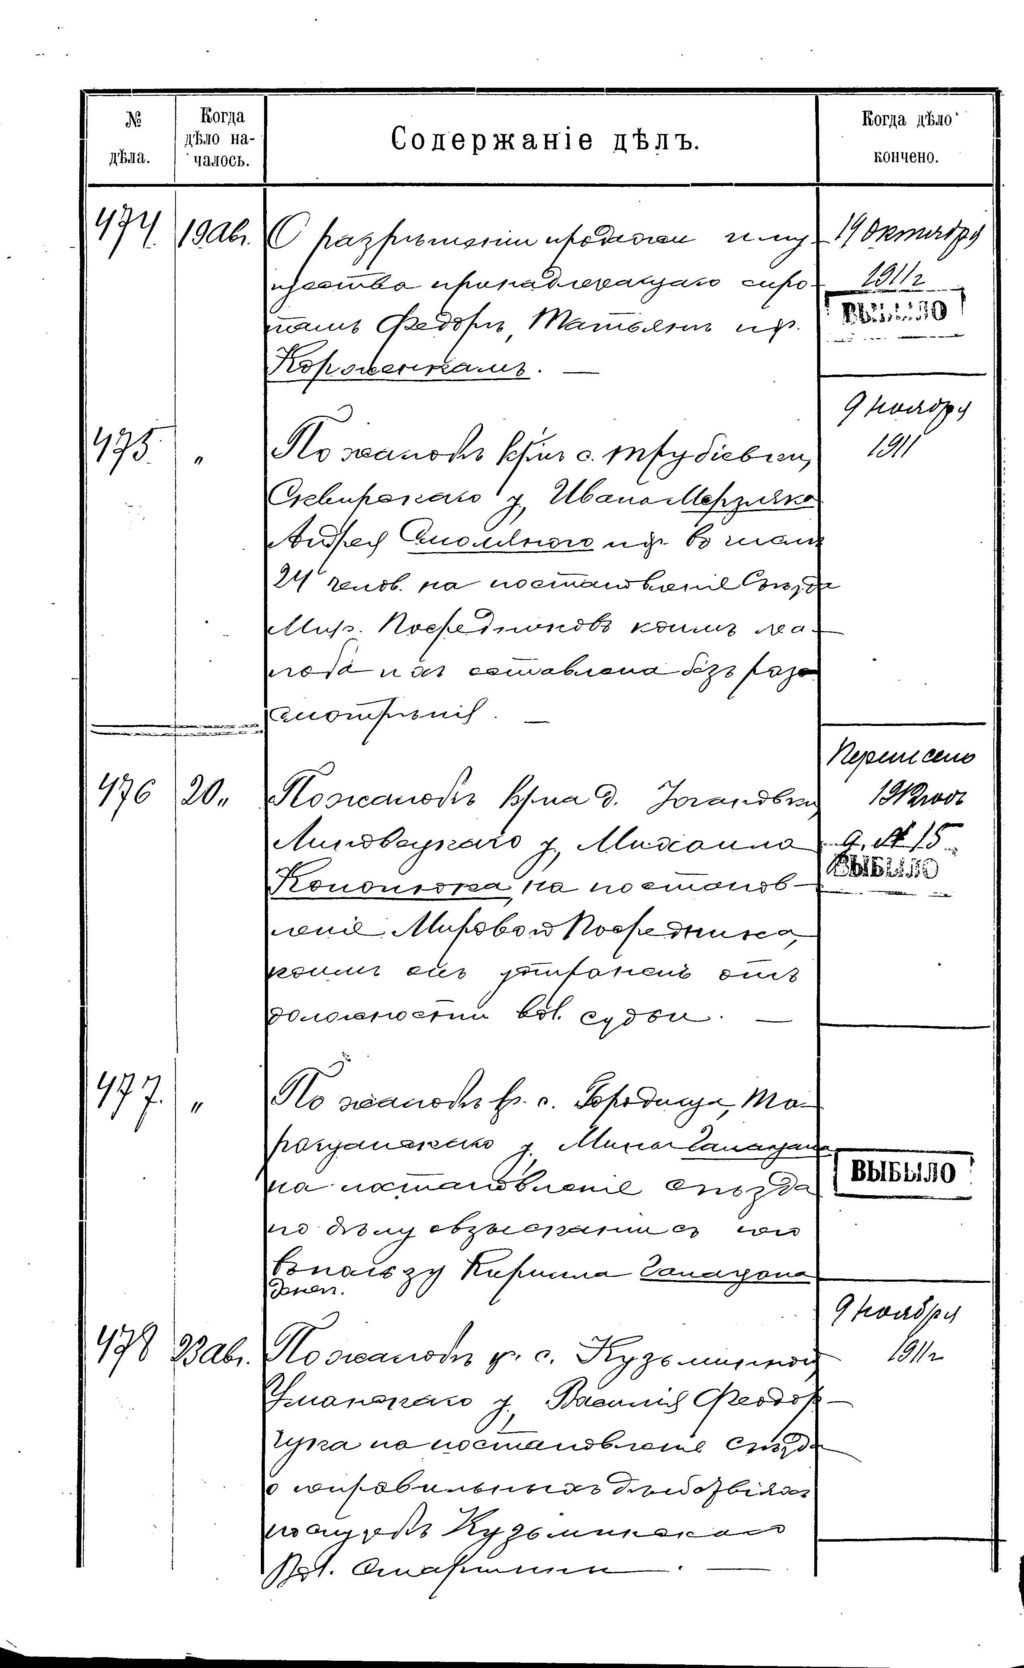 №
дѣла.
Когда
дѣло на-
чалось.
Содержаніе дѣлъ.
Когда дѣло
кончено.
474.
19 Авг.
О разрѣшеніи продажи иму
щества принадлежащаго сиро-
тамъ Федорѣ, Татьянѣ и др.
Корженкамъ. —
19 Октября
1911 г
ВЫБЫЛО
475.
"
По жалобѣ кр. с. Трубіевки,
Сквирскаго у, Ивана Мерзляка
Андрея Смоляного и др. въ числѣ
24 челов. на постановленіе Съѣзда
Мир. Посредниковъ коимъ жа-
лоба ихъ оставлена безъ раз
смотрѣнія. —
9 ноября
1911
476
20 "
По жалобѣ кр-на д.
Липовецкаго у, Михаила
Кононюка, на постанов-
леніе Мирового Посредника,
коимъ онъ устраненъ отъ
должности вол. судьи. —
Перенесено
1912 годъ
д. № 15
ВЫБЫЛО
477.
"
По жалобѣ кр. с. Городища, Та-
ращанскаго у. Мины Галагана
на постановленіе съѣзда
по дѣлу о взысканіи съ него
въ пользу Кирилла Галагана
денег.
ВЫБЫЛО
478
23 Авг.
По жалобѣ кр. с. Кузьминой
Уманскаго у, Василія Феодор-
чука на постановленіе съѣзда
о неправильныхъ дѣйствіяхъ
по службѣ Кузьминскаго
Вол. Старшины. —
9 ноября
1911 г